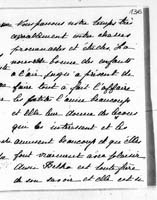 136
nous passons notre temps très
agréablement entre chasses
promenades et
nouvelle bonne des enfants
a l'air jusqu'à présent de
faire tout à fait l'affaire
les petites l'aime beaucoup
et elle leur donne des leçons
qui les intéressent et les
amusent beaucoup et qu'elles
font vraiment avec plaisir
Anne est toute fière
de son savoir et elle est